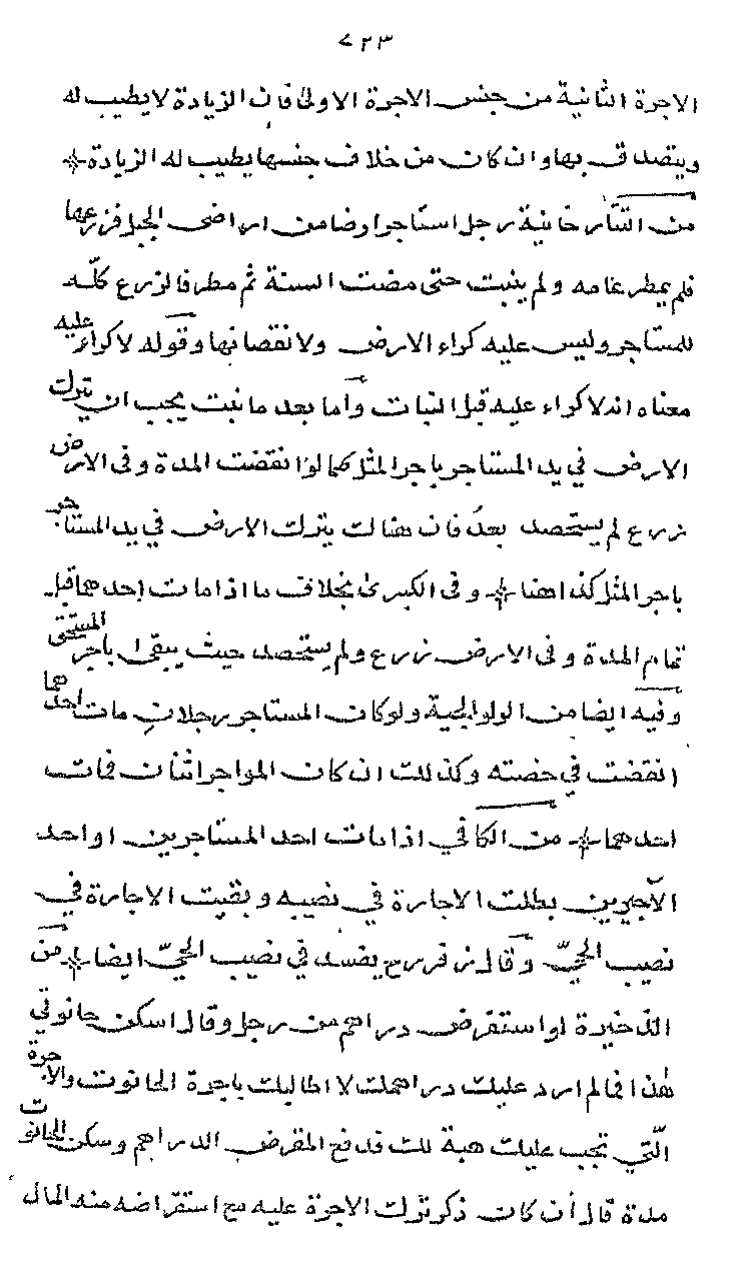 ٧٢٣
الاجرة الثانية من جنس الاجرة الاولى فان الزيادة لا يطيب له
ويتصدق بها وان كان من خلاف جنسها يطيب له الزيادة
من التتارخانية رجل استأجر ارضا من اراضى الجبل فزرعها
فلم يمطر عامه ولم ينبت حتى مضت السنة ثم مطر فالزرع كلّه
للمستاجر وليس عليه كراء الارض ولا نقصانها وقوله لا كراء عليه
معناه انه لا كراء عليه قبل النبات وأما بعد ما نبت يجب ان يترك
الارض في يد المستاجر باجر المثل كما لو انقضت المدة وفى الارض
زرع لم يستحصد بعدُ فان هناك يترك الارض في يد المستاجر
باجر المثل كذا هنا وفى الكبرىٰ بخلاف ما اذا مات احدهما قبل
تمام المدة وفى الارض زرع ولم يستحصد حيث يبقى باجر المسمى
وفيه ايضا من الولوالجية ولو كان المستاجر رجلان مات احدهما
انقضت في حصته وكذلك ان كان المواجر اثنان فمات
احدهما من الكافي اذا مات احد المستاجرين او احد
الآجرين بطلت الاجارة في نصيبه وبقيت الاجارة في
نصيب الحيّ وقال زفر رح يفسد في نصيب الحيّ ايضا من
الذخيرة لو استقرض دراهم من رجل وقال اسكن حانوتي
هٰذا فمالم ارد عليك دراهمك لا اطالبك باجرة الحانوت والاجرة
الّتي تجب عليك هبة لك فدفع المقرض الدراهم وسكن الحانوت
مدة قال أن كان ذكر ترك الاجرة عليه مع استقراضه منه المال